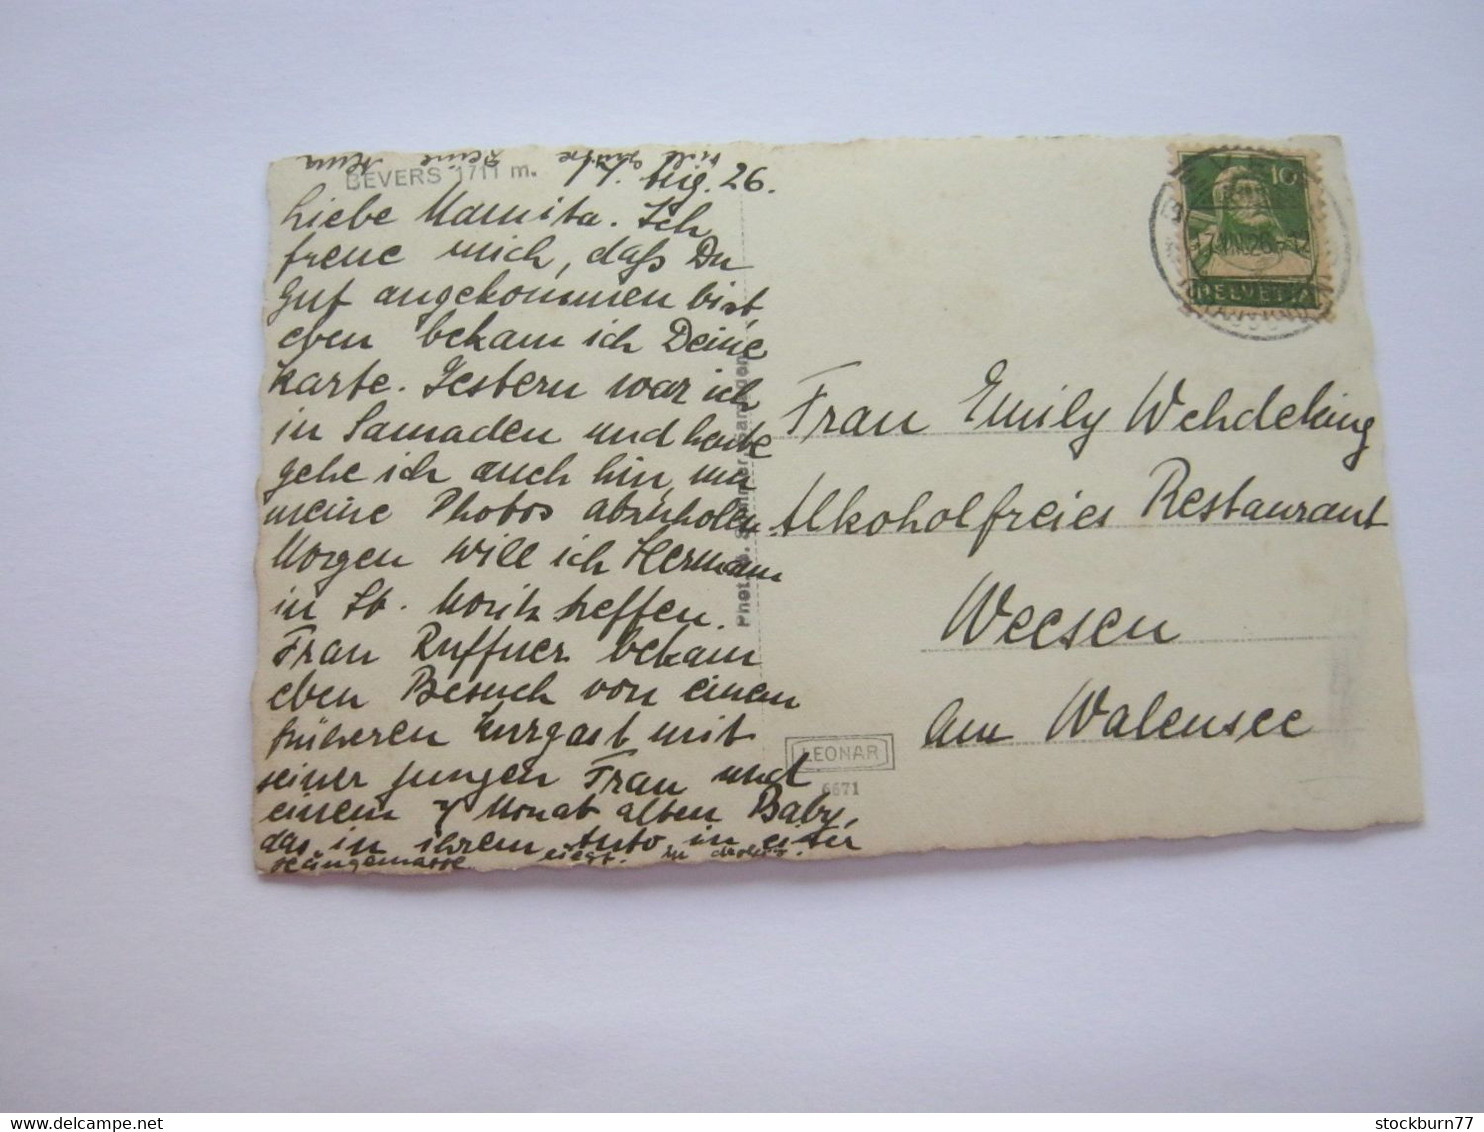 BEVERS 1711 m.
17. Aug. 26.
Liebe Mamita. Ich
freue mich, daß Du
gut angekommen bist,
eben bekam ich Deine
Karte. Gestern war ich
in Samaden und heute
gehe ich auch hin, um
meine Photos abzuholen.
Morgen will ich Hermann
in St. Moritz treffen.
Frau Ruffner bekam
eben Besuch von einem
früheren Kurgast mit
seiner jungen Frau und
einem 7 Monat alten Baby,
das in ihrem Auto in einer
Hängematte liegt.
viel Grüße Deine
Phot. Samaden
10
17.VIII.26
HELVETIA
Frau Emily Wehdeking
Alkoholfreies Restaurant
Weesen
am Walensee
LEONAR
6671
www.delcampe.net
stockburn77